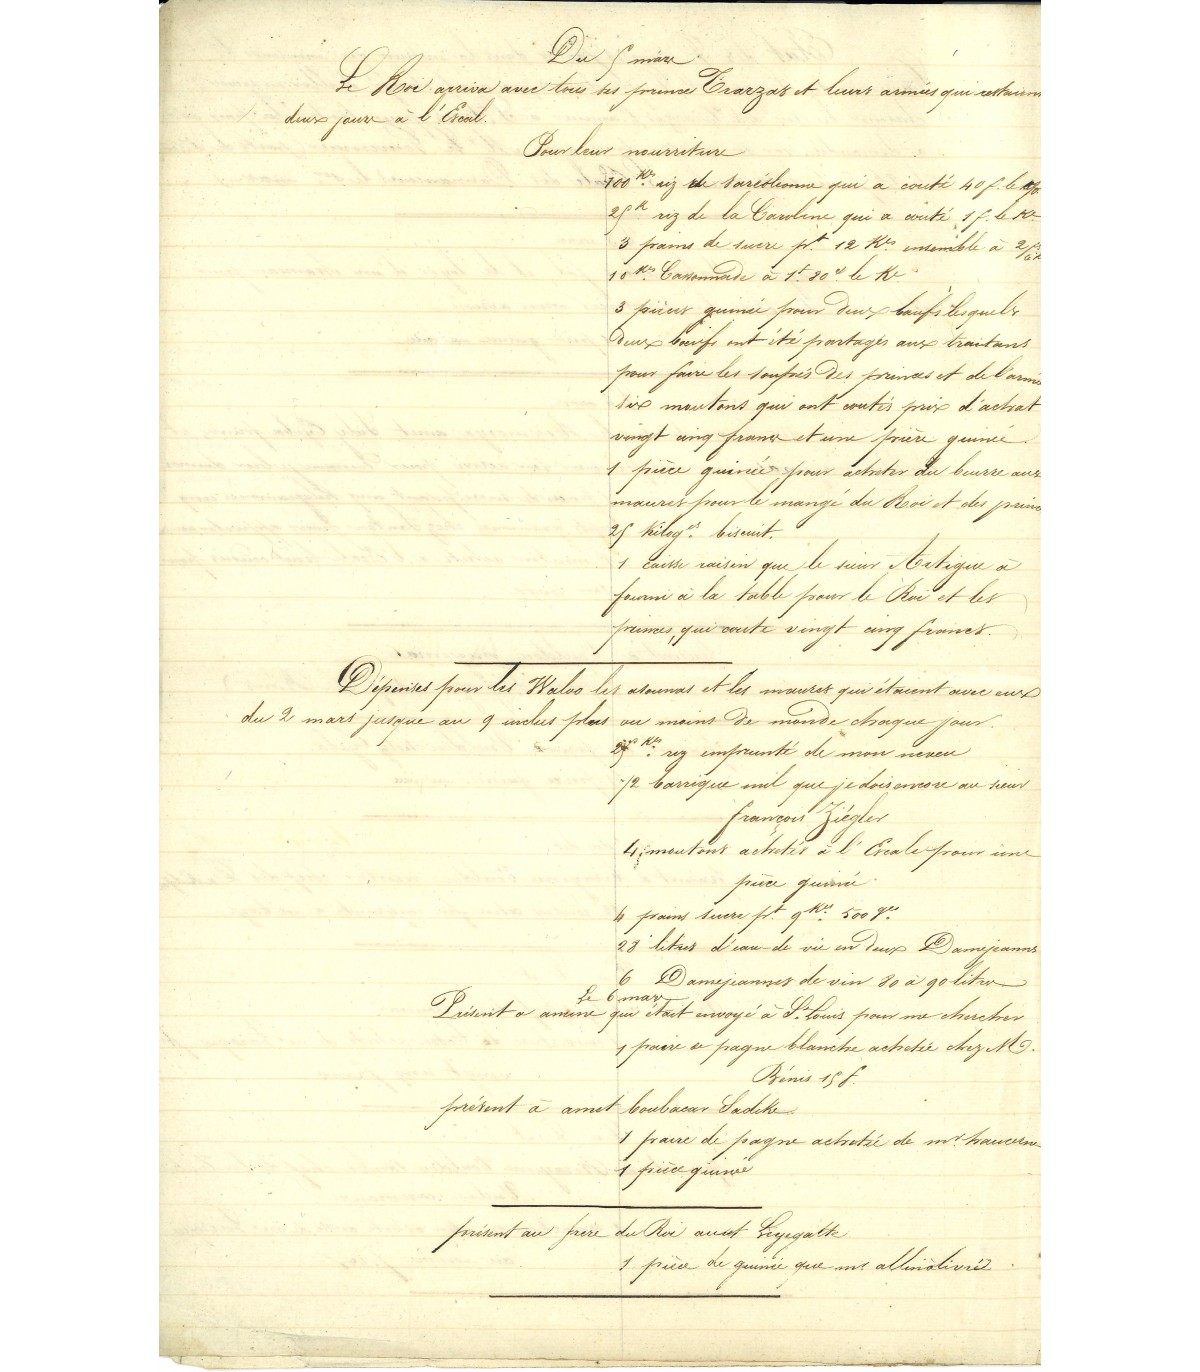 Du 5 mars
Le Roi arriva avec tous ses prince Trarzas et leurs armées qui restaient
deux jours à l'Escal.
Pour leur nourriture
100 Kos riz de qui a couté 40 f. le
25 K riz de la Caroline qui a couté 1 f. le Ko
3 pains de sucre pt 12 Kos ensemble à
10 Kos Cassonnade à 1f. 80c le Ko
3 pièces guinée pour deux bœufs lesquels
deux bœufs ont été partagés aux traitans
pour faire les soupés des princes et de l'armé
six moutons qui ont coutés prix d'achat
vingt cinq francs et une pièce guinée
1 pièce guinée pour acheter du beurre aux
maures pour le mangé du Roi et des princ
25 kilogres biscuit.
1 caisse raisin que le sieur Artigue à
fourni à la table pour le Roi et les
princes, qui coute vingt cinq francs.
Dépenses pour les Waloo les asounas et les maures qui étaient avec eux
du 2 mars jusque au 9 inclus plus ou moins de monde chaque jour.
Kos riz emprunté de mon neveu
1/2 barrique mil que je dois encore au sieur
françois Ziégler
4 moutons achetés à l'Escale pour une
pièce guinée
4 pains sucre pt 9 Kos 500 ges
28 litres d'eau de vie en deux Damejeanns
6 Damejeannes de vin 80 à 90 litres
Le 6 mars
Présent a qui était envoyé à St Louis pour me chercher
1 paire de pagne blanche achetée chez M.
Bénis 15 f.
présent à amet boubacar Sadike
1 paire de pagne achetée de mr
1 pièce guinée
présent au frere du Roi amet
1 pièce de guinée que mr livrée